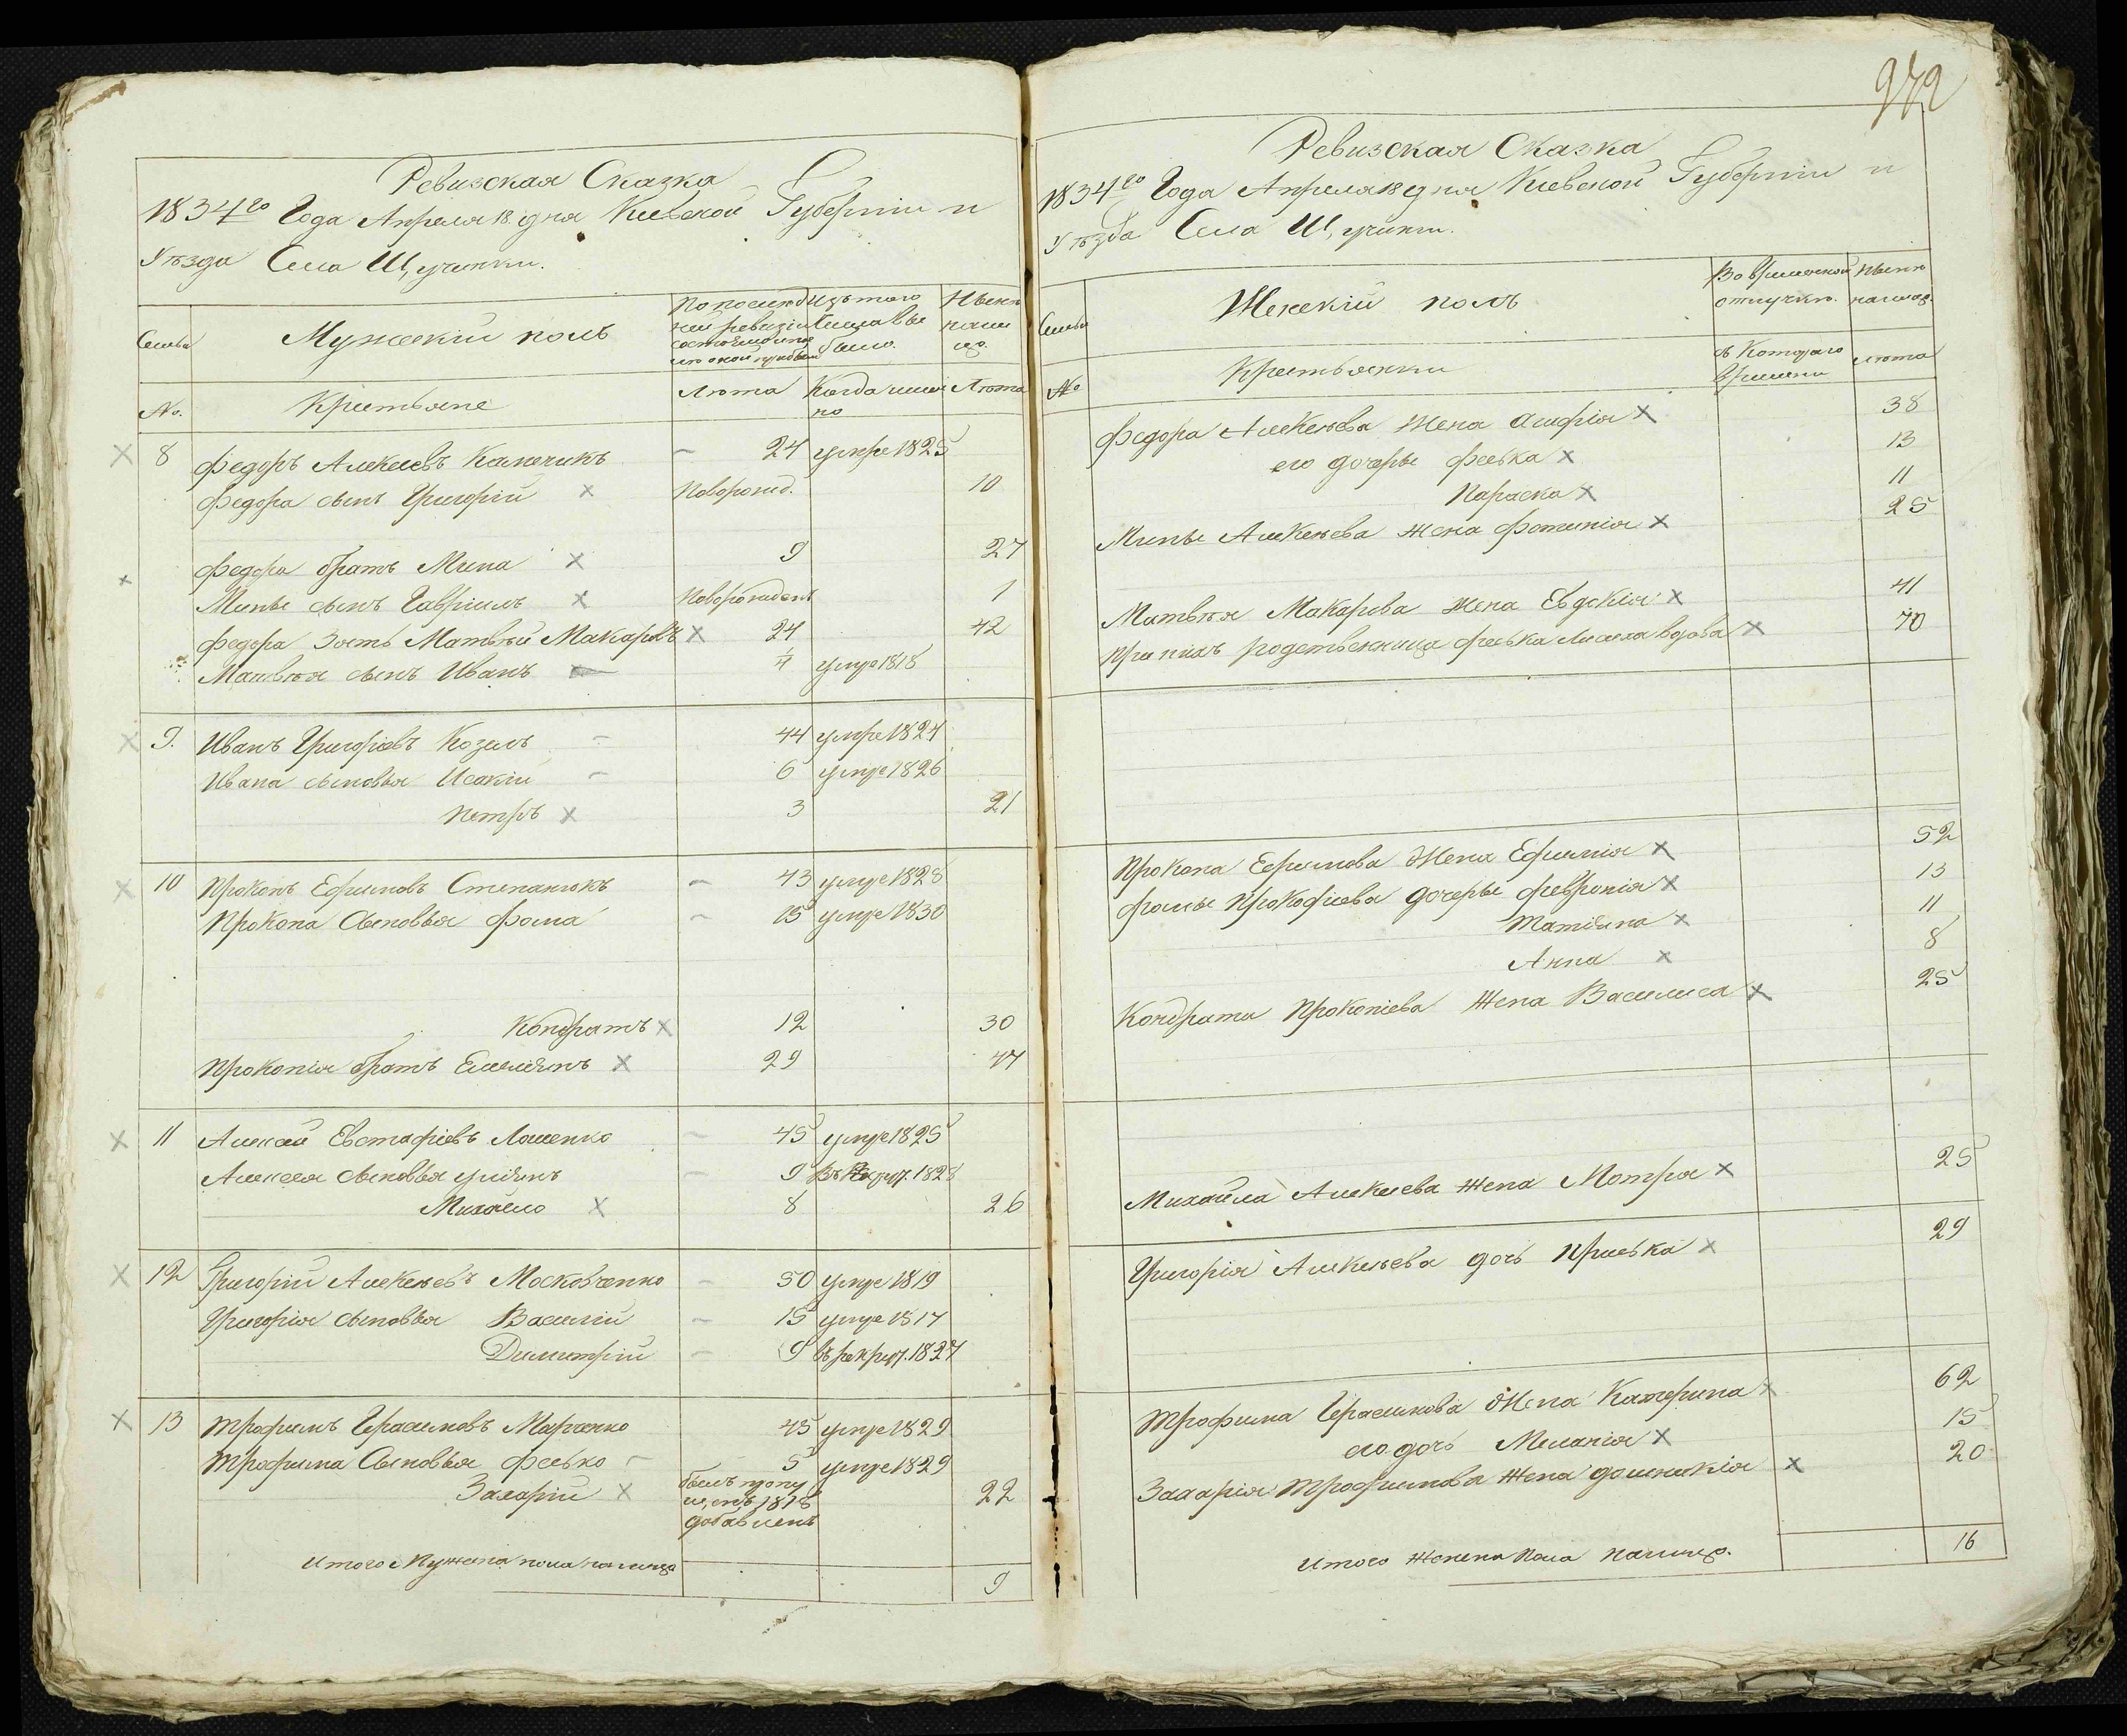 Ревизская Сказка
1834го Года Апреля 18 дня Киевской Губернiи и
Уѣзда Села Щучинки.
Семьи
Мужескiй полъ
По послед
ней ревизiи
состояло и по
Изъ того
числа вы
было.
Нынѣ
на ли
цо.
No.
Крестьяне
Лѣта
Когда имен
но
Лѣта
8 Федоръ Алексѣевъ Капечикъ 24 умре 1825
Федора сынъ Григорiй новорожд. 10
Федора братъ Мина 9 27
Мины сынъ Гаврiилъ новорожденъ 1
Федора зять Матвѣй Макаровъ 24 42
Матвѣя сынъ Иванъ умре 1818
9. Иванъ Григорiевъ Козелъ 44 умре 1824
Ивана сыновья Исакiй 6 умре 1826
Петръ 3 21
10 Прокопъ Ефимовъ Степанюкъ 43 умре 1828
Прокопа Сыновья Фома 15 умре 1830
Кондратъ 12 30
Прокопiя братъ Емелiянъ 29 47
11 Алексѣй Евстафiевъ Лошенко 45 умре 1825
Алексея сыновья Улiянъ 9 въ рекрут. 1828
Михайло 8 26
12 Григорiй Алексѣевъ Московченко 50 умре 1819
Григорiя сыновья Василiй 15 умре 1817
Димитрiй 9 въ рекрут. 1827
13 Трофимъ Герасимовъ Марченко 45 умре 1829
Трофима Сыновья Фесько 5 умре 1829
Захарiй былъ пропу
щенъ 1818
добавленъ 22
Итого Мужеска пола на лицо 9
972
Ревизская Сказка
1834го Года Апреля 18 дня Киевской Губернiи и
Уѣзда Села Щучинки.
Семьи
Женскiй полъ
Во временной
отлучкѣ.
Нынѣ
налицо.
No
Крестьянки
съ Котораго
времени
лѣта
Федора Алексѣева Жена Агафiя 38
его дочеры Феська 13
Параска 11
Мины Алексѣева жена Фотинiя 25
Матвѣя Макарова жена Евдокiя 41
При нихъ родственница Феська вдова 70
Прокопа Ефимова Жена Ефимiя 52
Фомы Прокофiева дочеры Февронiя 13
Татiяна 11
Анна 8
Кондрата Прокопiева Жена Василиса 25
Михайла Алексѣева жена Мотря 25
Григорiя Алексѣева дочь Приська 29
Трофима Герасимова Жена Катерина 62
его дочь Меланiя 15
Захарiя Трофимова жена Домникiя 20
Итого женска пола налицо. 16